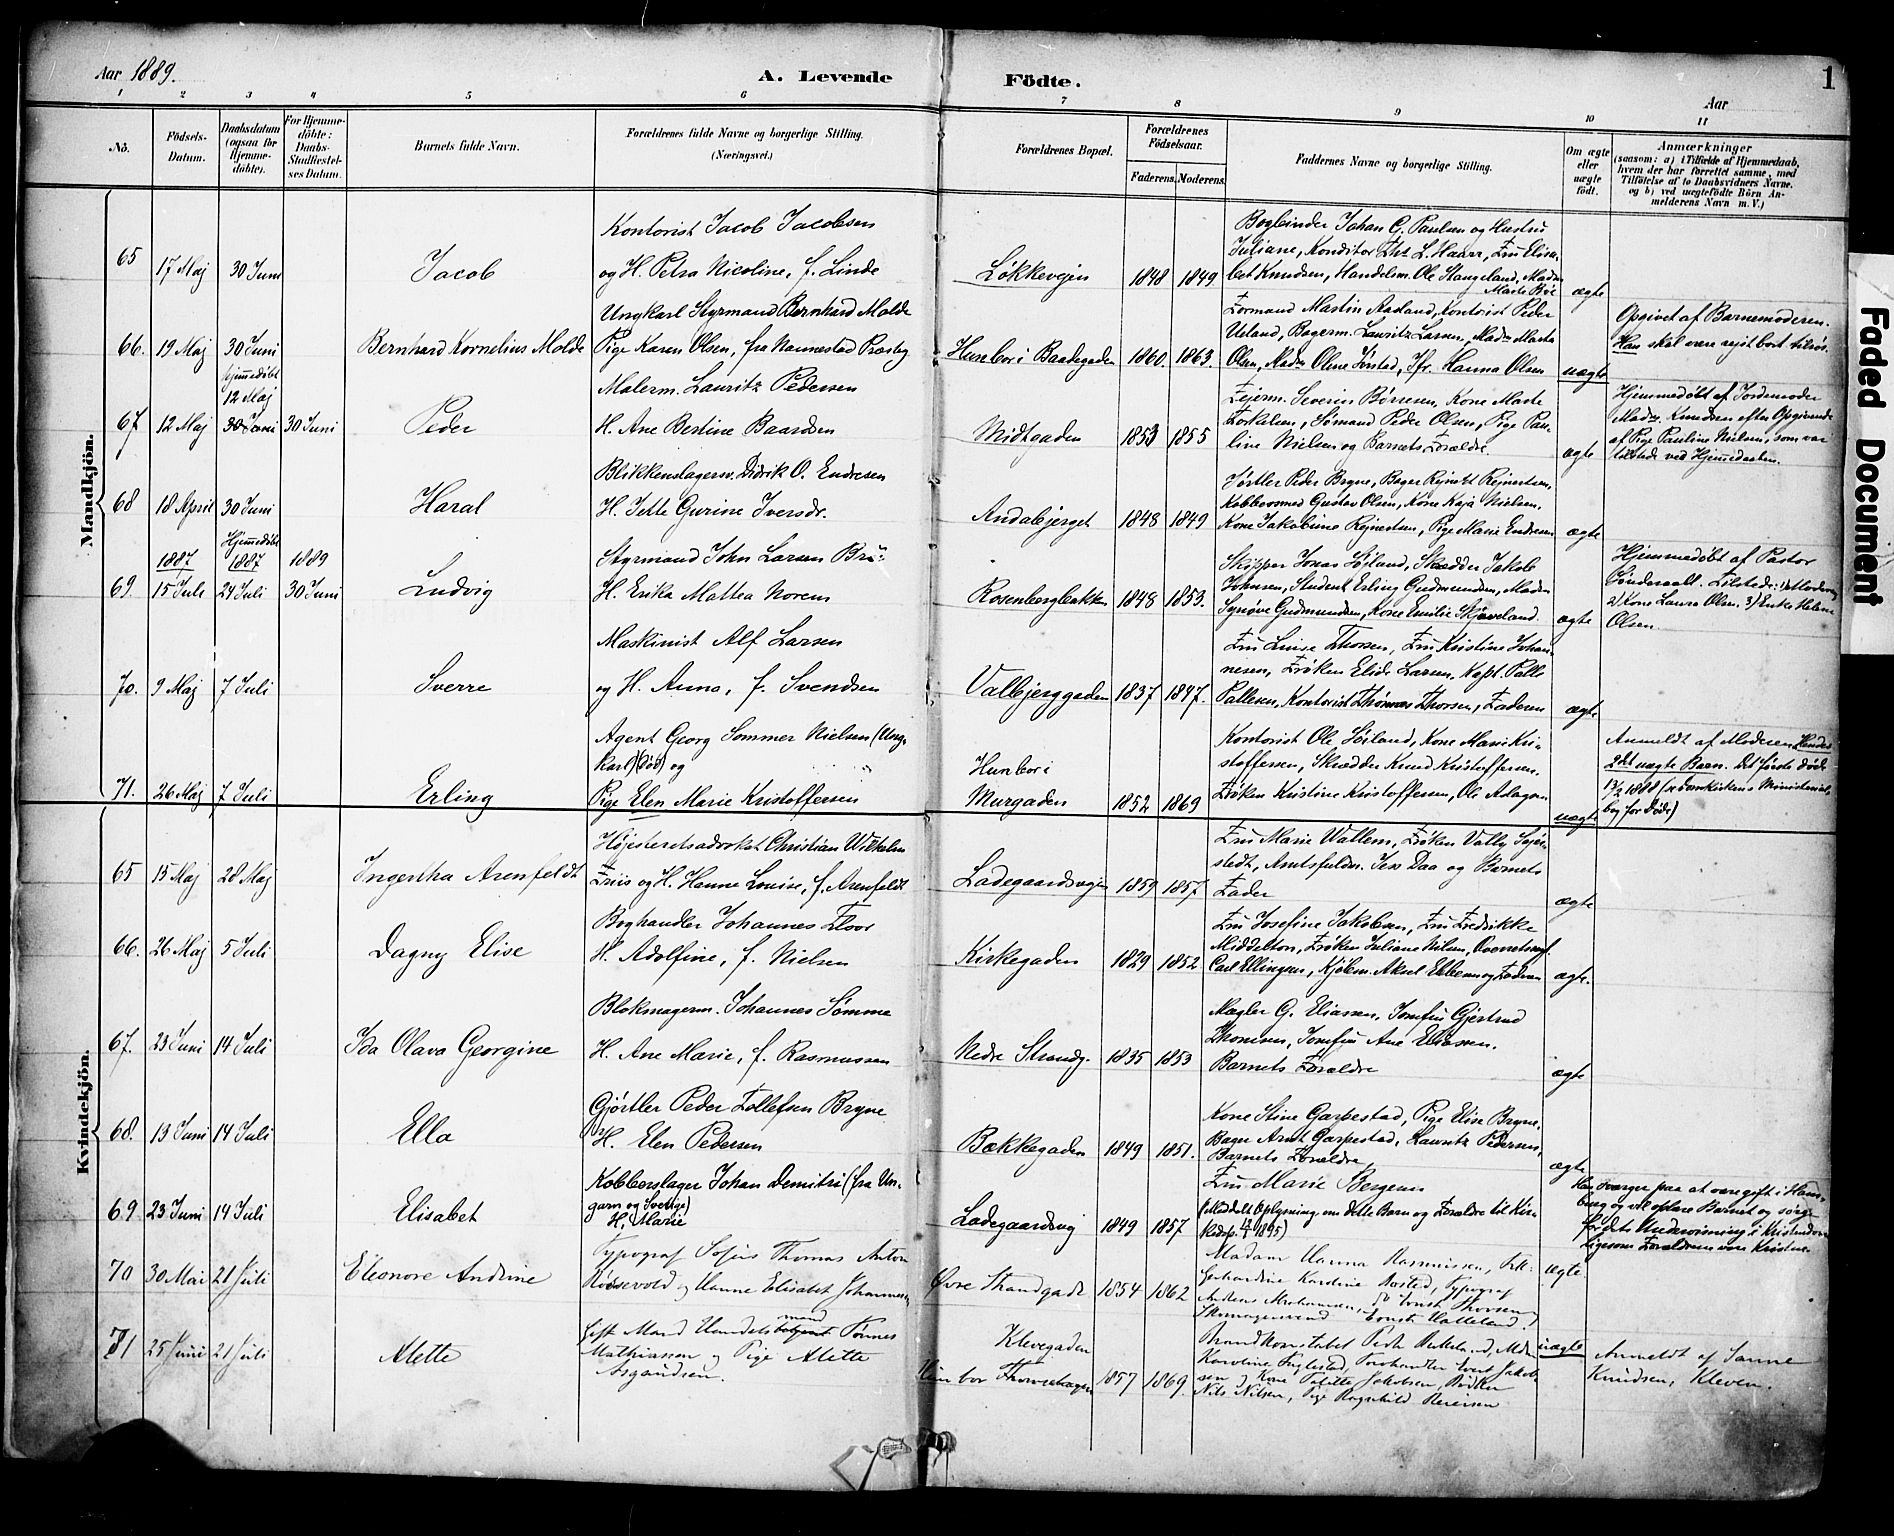 Aar 1889.
A. Levende
Födte.
1
Aar
1 2 3 4 5 6 7 8 9 10 11
No.
Födsels-
Datum.
Daabsdatum
(ogsaa for
Hjemme-
döbte).
For Hjemme-
döbte:
Daabs-
Stadfæstel-
ses Datum.
Barnets fulde Navn.
Forældrenes fulde Navne og borgerlige Stilling.
(Næringsvei.)
Forældrenes Bopæl.
Forældrenes
Födselsaar.
Faderens. Moderens.
Faddernes Navne og borgerlige Stilling.
Om ægte
eller
uægte
födt.
Anmærkninger
(saasom: a) i Tilfælde af Hjemmedaab,
hvem der har forrettet samme, med
Tilföielse af to Daabsvidners Navne.
og b) ved uægtefödte Börn An-
melderens Navn m. V.)
Mandkjön.
65
17 Maj
30 Juni
Jacob
Kontorist Jacob Jacobsen
og H. Petra Nicoline, f. Linde
Løkkevejen
1848 1849
Bogbinder Johan G. Paulsen og Hustru
Juliane, Konditor L. Haarr, Fru Elisa-
bet Knudsen, Handelsm. Ole Stangeland, Madm
Marte Bøe
ægte
66.
19 Maj
30 Juni
Bernhard Kornelius Molde
Ungkarl Styrmand Bernhard Molde
Pige Karen Olsen, fra Nannestad Præstg
Hun bor i Baadegaden
1860. 1863.
Formand Martin Aasland, Kontorist Peder
Ueland, Bagerm. Lauritz Larsen, Madm Marta
Olsen, Madm Oline Jørstad, Jfr. Hanna Olsen
uægte
Opgivet af Barnemoderen.
Han skal være rejst bort tilsøs.
67
12 Maj
Hjemmedøbt
12 Maj
30 Juni
30 Juni
Peder
Malerm. Lauritz Pedersen
H. Ane Bertine Baardsen
Midtgaden
1853 1855
Fejerm. Severin Børresen, Kone Marte
Torkelsen, Sømand Peder Olsen, Pige Pau-
line Nielsen og Barnets Forældre.
ægte
Hjemmedøbt af Jordemoder
Madm. Knudsen efter Opgivende
af Pige Pauline Nielsen, som var
tilstede ved Hjemmedaaben.
68
18 April
30 Juni
Haral
Blikkenslagersv. Didrik O. Endresen
H. Jette Gurine Iversdr.
Andabjerget
1848 1849
Gjørtler Peder Bryne, Bager Rejnert Rejnertsen,
Kobbersmed Gustav Olsen, Kone Kaja Nielsen,
Kone Jakobine Rejnertsen, Pige Marie Endresen
ægte
69.
1887
15 Juli
Hjemmedøbt
1887
24 Juli
1889
30 Juni
Ludvig
Styrmand John Larsen Bru
H. Erika Mattea Norem
Rosenbergbakken
1848 1853.
Skipper Jonas Sojland, Skrædder Jakob
Johnsen, Student Erling Gudmundsen, Madm
Synøve Gudmundsen, Kone Emilie Skjæveland.
ægte
Hjemmedøbt af Pastor
Sønderaall. Tilstede: 1) Moderen
2) Kone Laura Olsen. 3) Enke Helene
Olsen.
70.
9 Maj
7 Juli
Sverre
Maskinist Alf Larsen
og H. Anna, f. Svendsen
Valbjerggaden
1837 1847.
Fru Luise Thorsen, Fru Kristine Johan-
nesen, Frøken Elida Larsen, Kapt. Palle
Pallesen, Kontorist Thomas Thorsen, Faderen
ægte
71.
26 Maj
7 Juli
Erling
Agent Georg Sommer Nielsen (Ung-
karl) (Død) og
Pige Elen Marie Kristoffersen
Hun bor i
Murgaden
1852 1869
Kontorist Ole Søiland, Kone Marie Kri-
stoffersen, Skrædder Knud Kristoffersen.
Frøken Kristine Kristoffersen, Ole Adagsen
uægte
Anmeldt af Moderen, Hendes
2det uægte Barn. Det første døde
13/2 1888 (se Domkirkens Ministerial-
bog for Døde)
Kvindekjön.
65
15 Maj
28 Maj
Ingertha Arenfeldt
Højesteretsadvokat Christian Wilhelm
Friis og H. Hanne Louise, f. Arenfeldt
Ladegaardsvejen
1859 1857.
Fru Marie Wallem, Frøken Vally Seje-
stedt, Amtsfuldm. Jens Daa og Barnets
Fader
ægte
66.
26 Maj
5 Juli
Dagny Elise
Boghandler Johannes Floor
H. Adolfine, f. Nielsen
Kirkegaden
1829 1852
Fru Josefine Jakobsen, Fru Fredrikke
Middelton, Frøken Juliane Nilsen, Overretssagf.
Carl Ellingsen, Kjøbm. Aksel Ebbesen og Faderen
ægte.
67.
23 Juni
14 Juli
Ida Olava Georgine
Blokmagerm. Johannes Sømme
H. Ane Marie, f. Rasmussen
Nedre Strandg.
1835 1853
Mægler G. Eliassen, Jomfru Gjertrud
Thomsen, Jomfru Ane Eliassen.
Barnets Forældre
ægte
68.
13 Juni
14 Juli
Ella
Gjørtler Peder Tollefsen Bryne
H. Elen Pedersen
Bækkegaden
1849 1851.
Kone Stine Garpestad, Pige Elise Bryne,
Bager Arnt Garpestad, Lauritz Pedersen,
Barnets Forældre
ægte
69
23 Juni
14 Juli
Elisabet
Kobberslager Johan Demitri (fra Un-
garn og Sverige)
H. Marie
Ladegaardsvej
1849 1857
Fru Marie Bergersen
(Meddelt Oplysning om dette Barn og Forældre til Kir-
kedep. 1895)
Han sværger paa at være gift i Ham-
burg og vil opføre Barnet og sørge
for dets Undervisning i Kristendom
ligesom Forældrene vare Kristne.
70
30 Mai
21 Juli
Eleonore Andrine
Typograf Sofus Thomas Anton
Roosevold og Hanne Elisabet Johannesen
Øvre Strandgade
1854 1862
Madam Hanna Rasmussen, Frk.
Gerhardine Kardine Aarstad, Typograf
Andreas Abrahamsen, Do Ernst Thorsen,
Skomagersvend Ernst Hatteland.
ægte
71
25 Juni
21 Juli
Alette
Gift Mand Handelsbetjent mand Tønnes
Mathiassen og Pige Alette
Asgautsen.
Klevegaden
Hun bor
1857 1869.
Brandkonstabel Peder, Mdm
Karoline Fuglestad, Evert Jakob-
sen og Kone Talitte Jakobsen, Bødker
Nils Nilsen, Pige Ragnhild
uægte
Anmeldt af Sanne
Knudsen, Kleven.
Faded Document